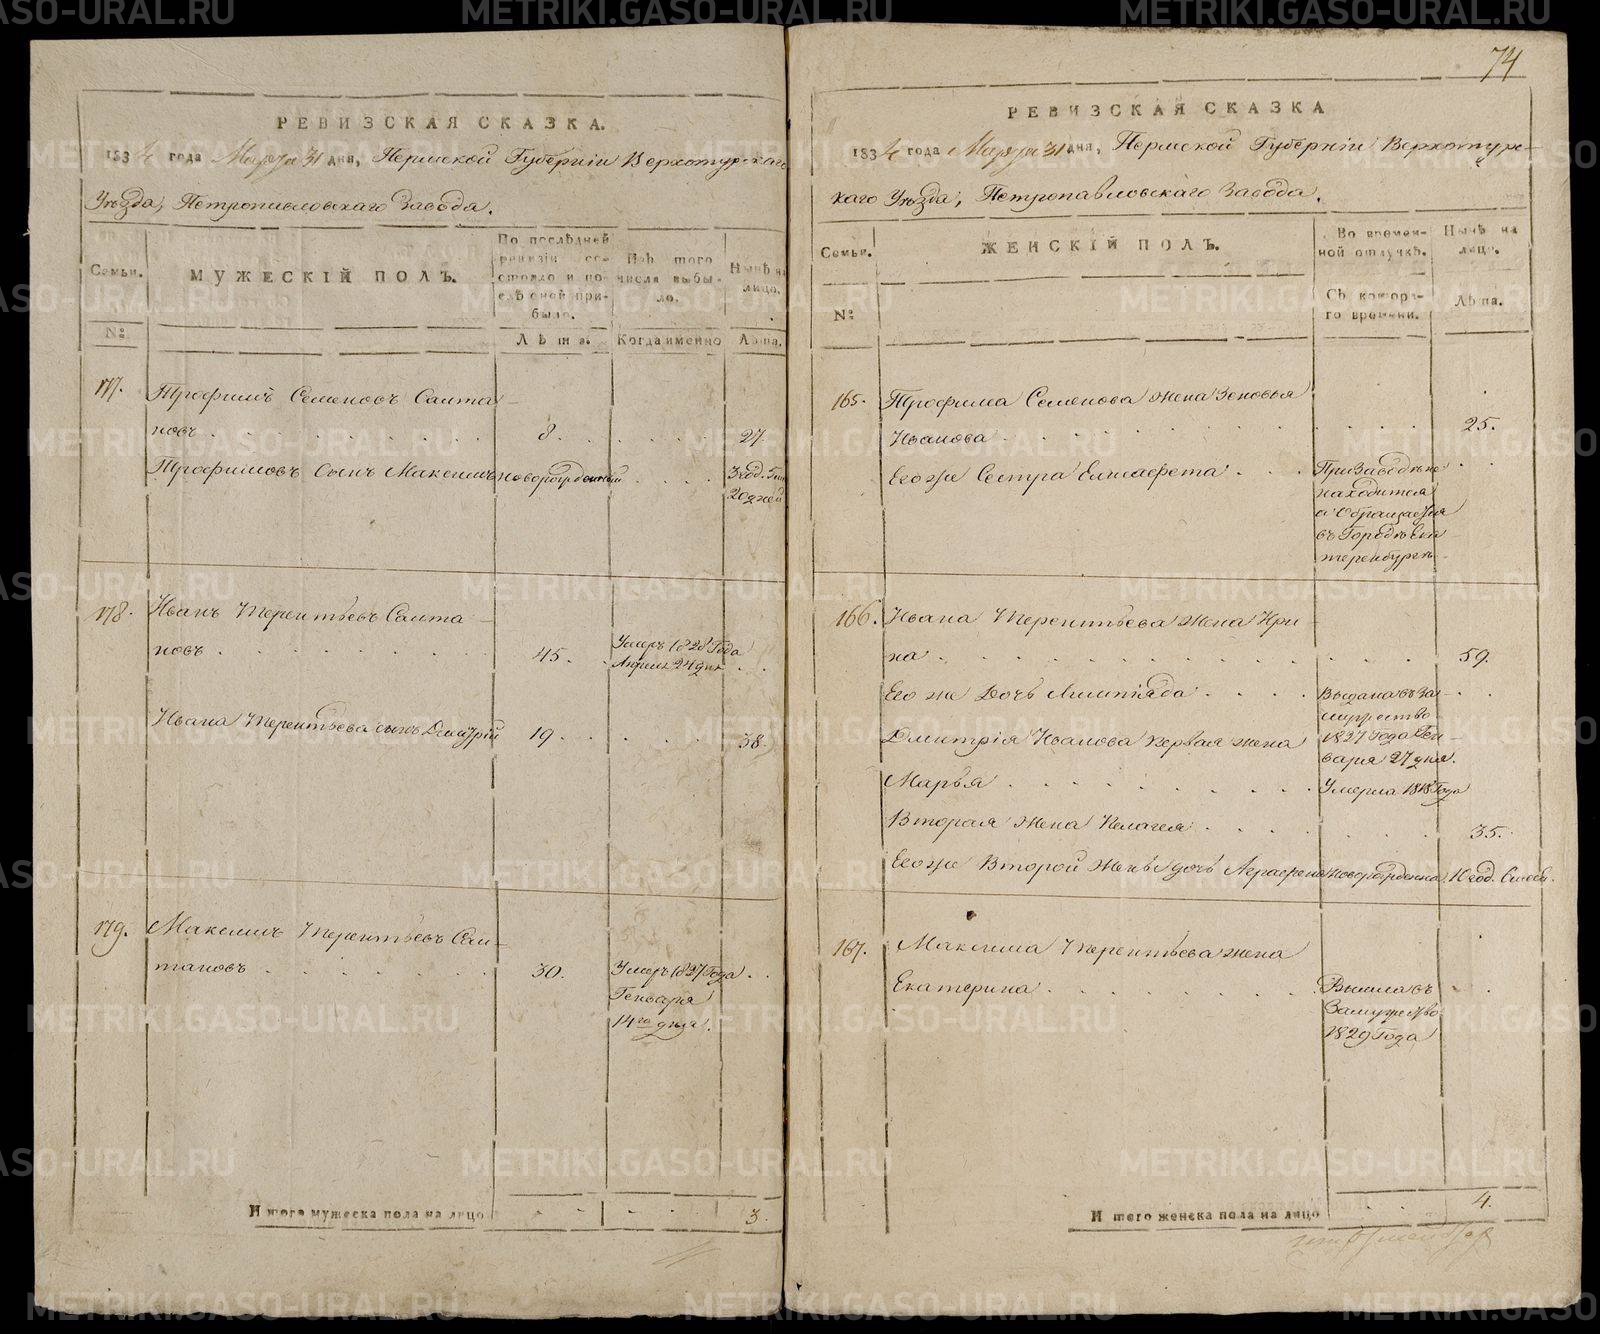 74
РЕВИЗСКАЯ СКАЗКА.
1834 года Марта 31 дня, Пермской Губерніи Верхотурскаго
Уѣзда, Петропавловскаго Завода.
Семьи.
МУЖЕСКІЙ ПОЛЪ.
По послѣдней ревизіи состояло и послѣ оной прибыло.
Изъ того числа выбыло.
Нынѣ на лицо.
№
Лѣта.
Когда именно
Лѣта.
177.
Трофимъ Семеновъ Салта
новъ
8.
27.
Трофимовъ сынъ Максимъ
новорожденный
3 год.
20 дней
178.
Иванъ Терентьевъ Салта
новъ
45.
Умеръ 1828 Года
Апреля 24 дня
Ивана Терентьева сынъ Дмитрій
19
38.
179.
Максимъ Терентьевъ Сал
тановъ
30.
Умеръ 1827 Года
Генваря
14го дня.
Итого мужеска пола на лицо
3.
РЕВИЗСКАЯ СКАЗКА
1834 года Марта 31 дня, Пермской Губерніи Верхотурс
каго Уѣзда, Петропавловскаго Завода.
Семьи.
ЖЕНСКІЙ ПОЛЪ.
Во временной отлучкѣ.
Нынѣ на лицо.
№
Съ котораго времени.
Лѣта.
165.
Трофима Семенова жена Зеновья
Иванова
25.
Его же Сестра Елисафета
При Заводѣ не
находится
а Обращается
въ Городѣ Ека
теренбургѣ
166.
Ивана Терентьева жена Ири
на
59.
Его же Дочь Алимпіяда
Выдана въ За
мужество
1827 Года Ген
варя 27 дня.
Дмитрія Иванова первая жена
Марья
Умерла 1818 Года
Вторая жена Пелагея
35.
Его же Второй Жены дочь Аграфена
новорожденна
10 год.
167.
Максима Терентьева жена
Екатерина
Вышла въ
Замужство
1829 Года
Итого женска пола на лицо
4.
METRIKI.GASO-URAL.RU